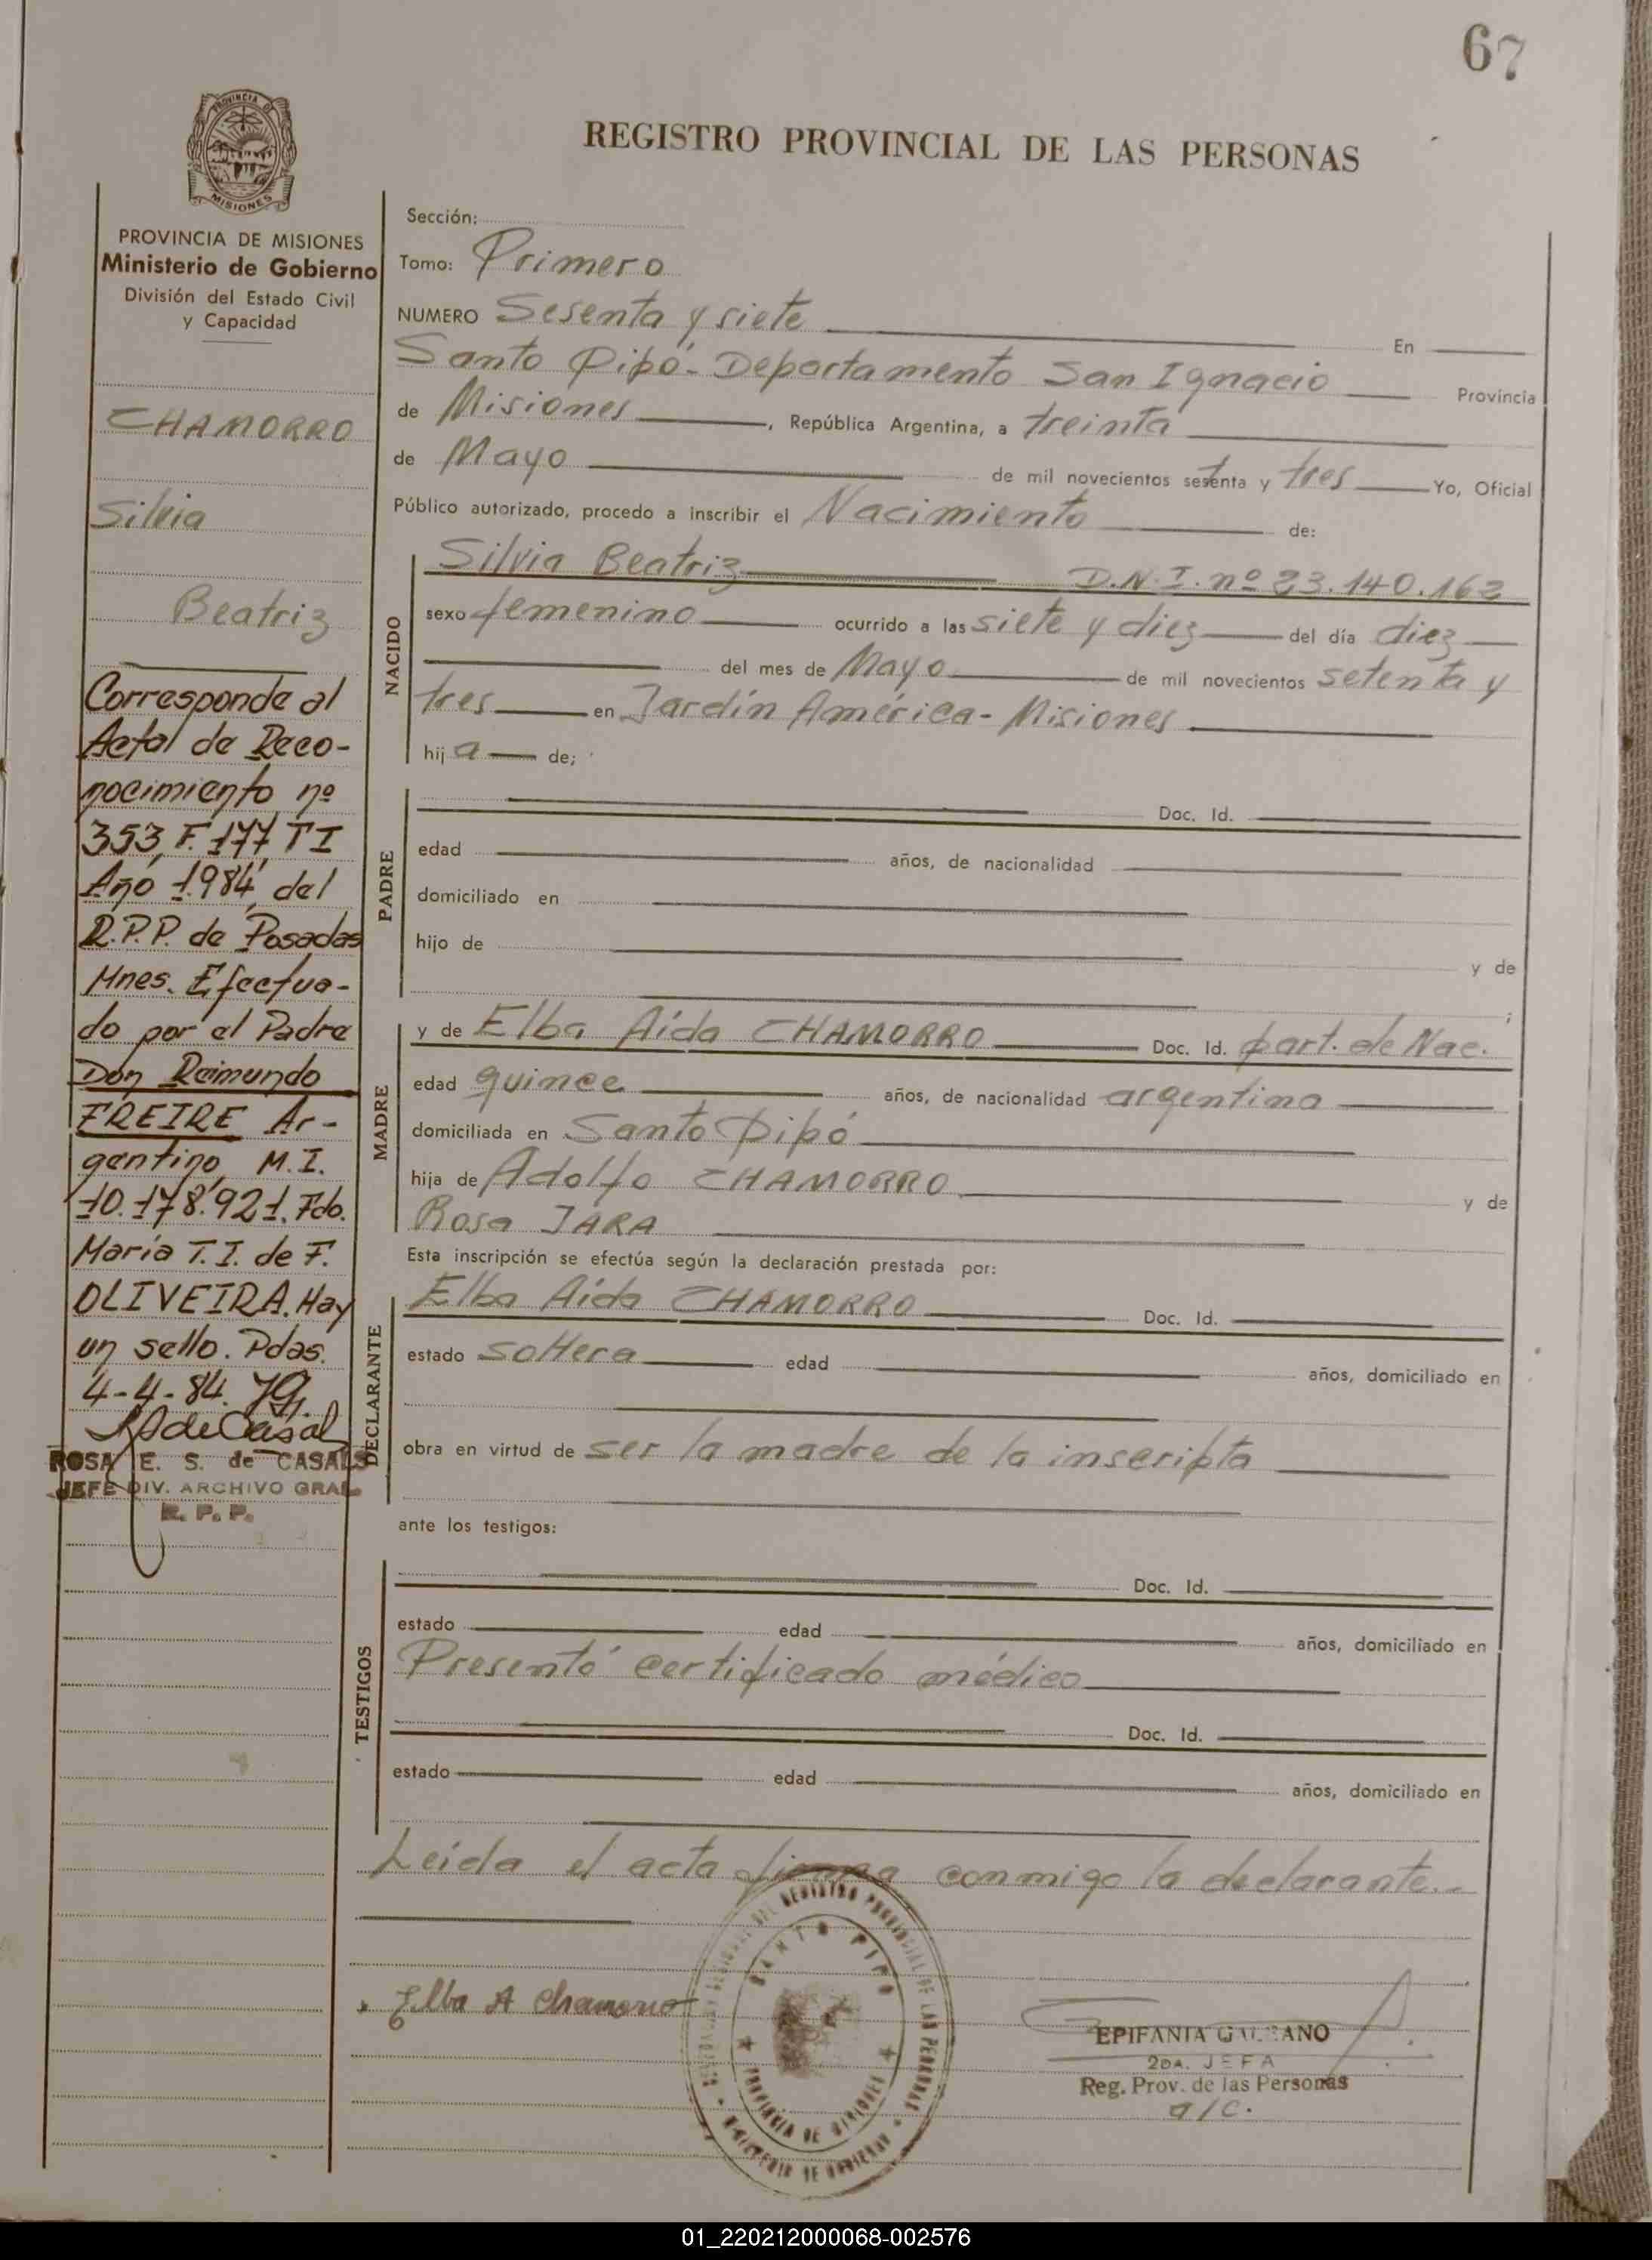 67
PROVINCIA DE
MISIONES
REGISTRO PROVINCIAL DE LAS PERSONAS
PROVINCIA DE MISIONES
Ministerio de Gobierno
División del Estado Civil
y Capacidad
CHAMORRO
Silvia
Beatriz
Corresponde al
Acta de Reco-
nocimiento nº
353, F. 177, T I
Año 1.984, del
R.P.P. de Posadas
Mnes. Efectua-
do por el Padre
Don Raimundo
FREIRE Ar-
gentino M.I.
10.178.921. Fdo.
María T. I. de F.
OLIVEIRA. Hay
un sello. Pdas.
4-4-84.
ROSA E. S. de CASALS
JEFE DIV. ARCHIVO GRAL
R. P. P.
Sección:
Tomo: Primero
NUMERO Sesenta y siete En
Santo Pipó - Departamento San Ignacio Provincia
de Misiones, República Argentina, a treinta
de Mayo de mil novecientos setenta y tres Yo, Oficial
Público autorizado, procedo a inscribir el Nacimiento de:
NACIDO
Silvia Beatriz D.N.I. nº 23.140.162
sexo femenino ocurrido a las siete y diez del día diez
del mes de Mayo de mil novecientos setenta y
tres en Jardín América - Misiones
hija de;
PADRE
Doc. Id.
edad años, de nacionalidad
domiciliado en
hijo de y de
;
MADRE
y de Elba Aída CHAMORRO Doc. Id. part. de Nac.
edad quince años, de nacionalidad argentina
domiciliada en Santo Pipó
hija de Adolfo CHAMORRO y de
Rosa JARA
Esta inscripción se efectúa según la declaración prestada por:
DECLARANTE
Elba Aída CHAMORRO Doc. Id.
estado soltera edad años, domiciliado en
obra en virtud de ser la madre de la inscripta
ante los testigos:
TESTIGOS
Doc. Id.
estado edad años, domiciliado en
Presentó certificado médico
Doc. Id.
estado edad años, domiciliado en
Leída el acta firma conmigo la declarante.-
Elba A Chamorro
REGISTRO PROVINCIAL DE LAS PERSONAS
SANTO PIPO
PROVINCIA DE MISIONES
MINISTERIO DE GOBIERNO
EPIFANIA GALEANO
2DA. JEFA
Reg. Prov. de las Personas
a/c.
01_220212000068-002576